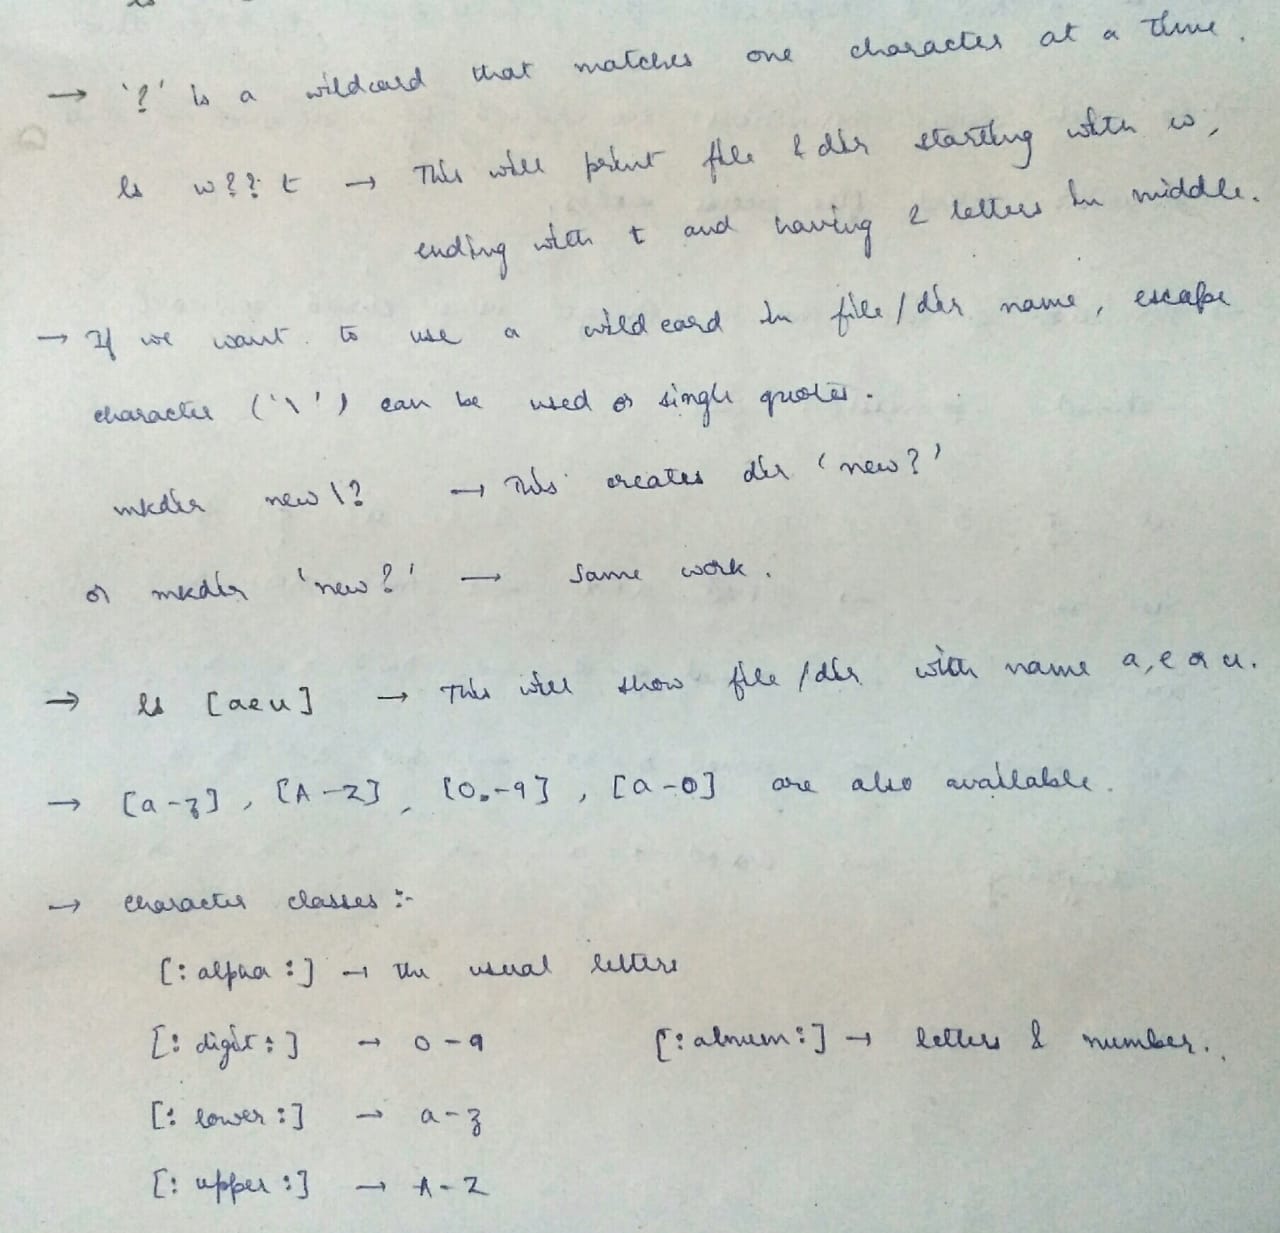 → '?' is a wildcard that matches one character at a time.
ls w??t → This will print file & dir starting with w,
ending with t and having 2 letters in middle.
→ If we want to use a wildcard in file/dir name, escape
character ('\') can be used or single quotes.
mkdir new\? → This creates dir 'new?'
or mkdir 'new?' → same work.
→ ls [aeu] → This will show file/dir with name a, e or u.
→ [a-z], [A-Z], [0-9], [a-0] are also available.
→ character classes :-
[:alpha:] → the usual letters
[:digit:] → 0-9 [:alnum:] → letters & number.
[:lower:] → a-z
[:upper:] → A-Z